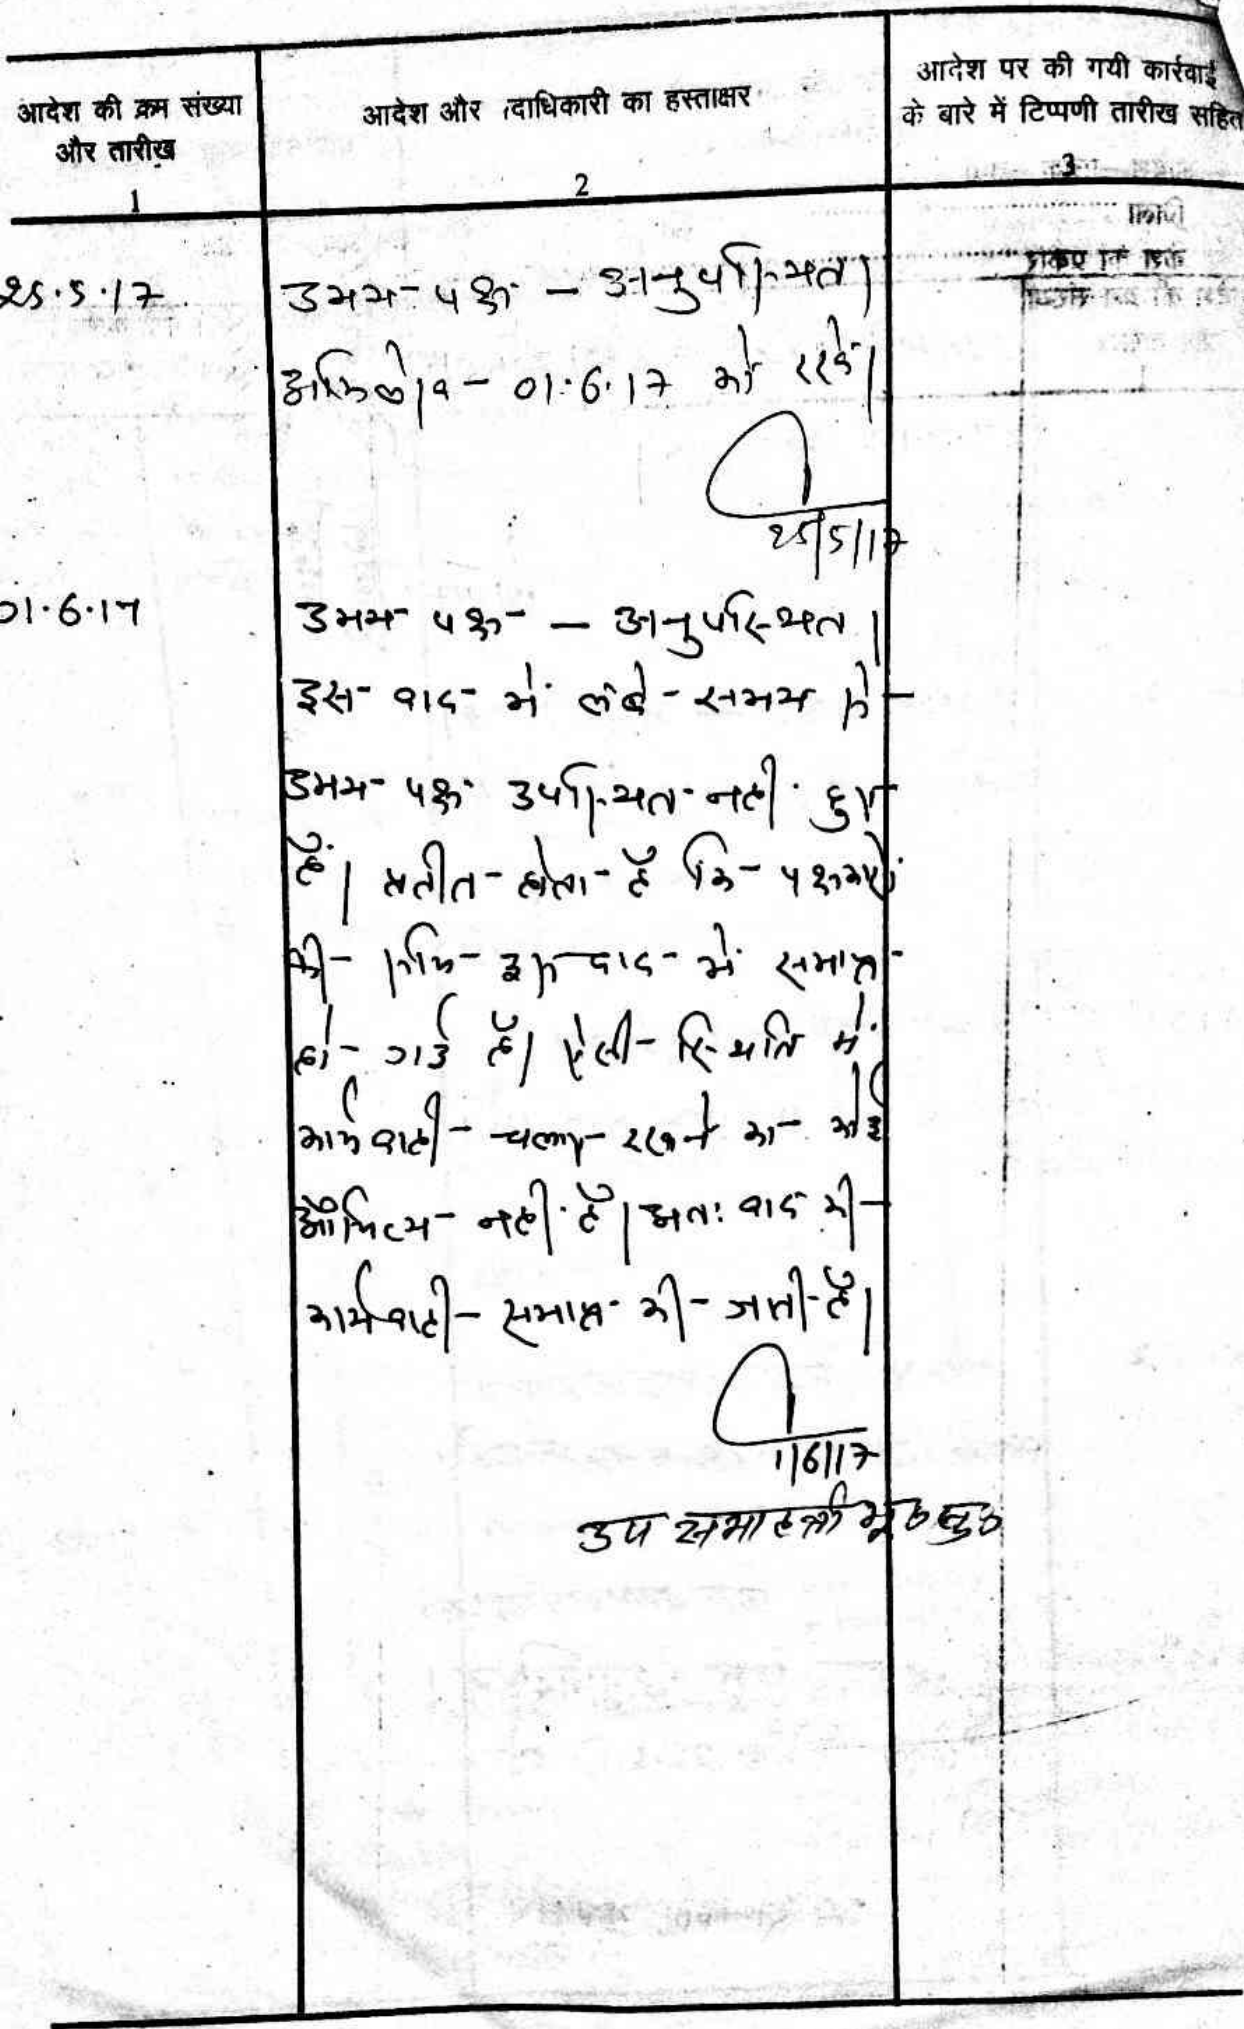 आदेश की क्रम संख्या
और तारीख
1
आदेश और पदाधिकारी का हस्ताक्षर
2
आदेश पर की गयी कार्रवाई
के बारे में टिप्पणी तारीख सहित
3
25.5.17
उभय पक्ष - अनुपस्थित।
अभिलेख - 01.6.17 को रखें।
25/5/17
01.6.17
उभय पक्ष - अनुपस्थित।
इस वाद में लंबे समय से
उभय पक्ष उपस्थित नहीं हुए
हैं। प्रतीत होता है कि पक्षकारों
की रूचि इस वाद में समाप्त
हो गई है। ऐसी स्थिति में
कार्यवाही चलाए रखने का कोई
औचित्य नहीं है। अतः वाद की
कार्यवाही समाप्त की जाती है।
1/6/17
उप समाहर्ता भू० सु०